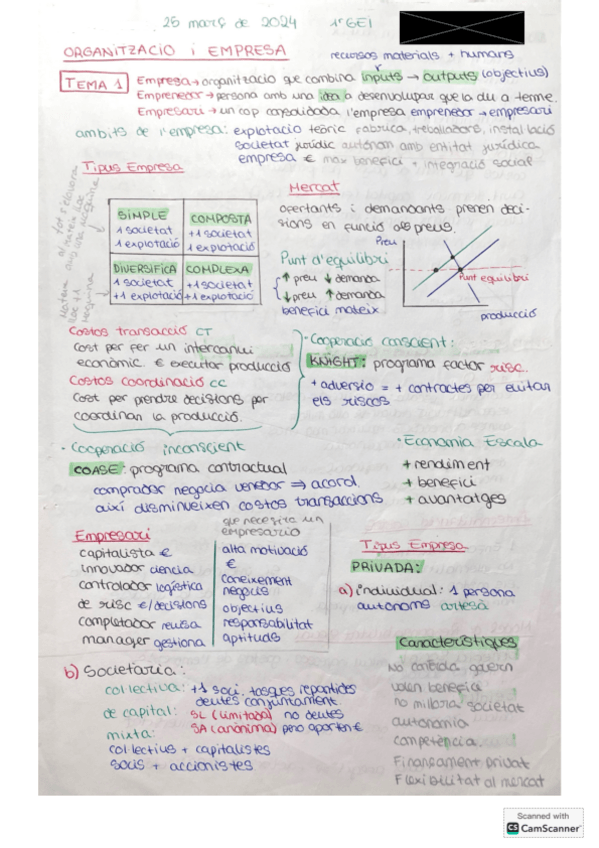 25 març de 2024 1r GEI
ORGANITZACIO i EMPRESA
recursos materials + humans
TEMA 1
Empresa → organització que combina inputs → outputs (objectius)
Emprenedor → persona amb una idea a desenvolupar que la du a terme.
Empresari → un cop consolidada l'empresa emprenedor → empresari
ambits de l'empresa: explotacio tecnic fabrica, treballadors, instal·lació
societat jurídic autònom amb entitat jurídica
empresa € max benefici + integració social
Tipus Empresa
SIMPLE
1 societat
1 explotació
COMPOSTA
+1 societat
1 explotació
DIVERSIFICA
1 societat
+1 explotació
COMPLEXA
+1 societat
+1 explotació
Mercat
ofertants i demandants prenen deci-
sions en funció dels preus.
Punt d'equilibri
↑ preu ↓ demanda
↓ preu ↑ demanda
benefici mateix
Preu
Punt equilibri
producció
Costos transacció CT
Cost per fer un intercanvi
econòmic. € executar producció
Costos coordinació CC
Cost per prendre decisions per
coordinar la producció.
· Cooperació conscient:
KNIGHT: programa factor risc.
+ adversio = + contractes per evitar
els riscos
· Cooperació inconscient
COASE: programa contractual
comprador negocia venedor ⇒ acord.
així disminueixen costos transaccions
· Economia Escala
+ rendiment
+ benefici
+ avantatges
Empresari
capitalista €
innovador ciència
controlador logística
de risc €/decisions
completador
manager gestiona
que necesita un
empresario
alta motivació
€
coneixement
negocis
objectius
responsabilitat
aptituds
Tipus Empresa
PRIVADA:
a) individual: 1 persona
autonoms artesà
b) Societària:
col·lectiva: +1 soci. tasques repartides
deutes conjuntament.
de capital: SL (limitada) no deutes
SA (anònima) però aporten €
mixta:
col·lectius + capitalistes
socis + accionistes
Característiques
No controla govern
volen benefici
no millora societat
autonomia
competència
Finançament privat
Flexibilitat al mercat
Scanned with
CS CamScanner